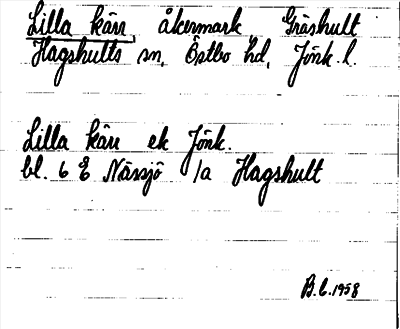 Lilla kärr, åkermark, Gräshult
Hagshults sn, Östbo hd, Jönk. l.
Lilla kärr ek Jönk.
bl. 6 E Nässjö 1a Hagshult
B.C. 1958